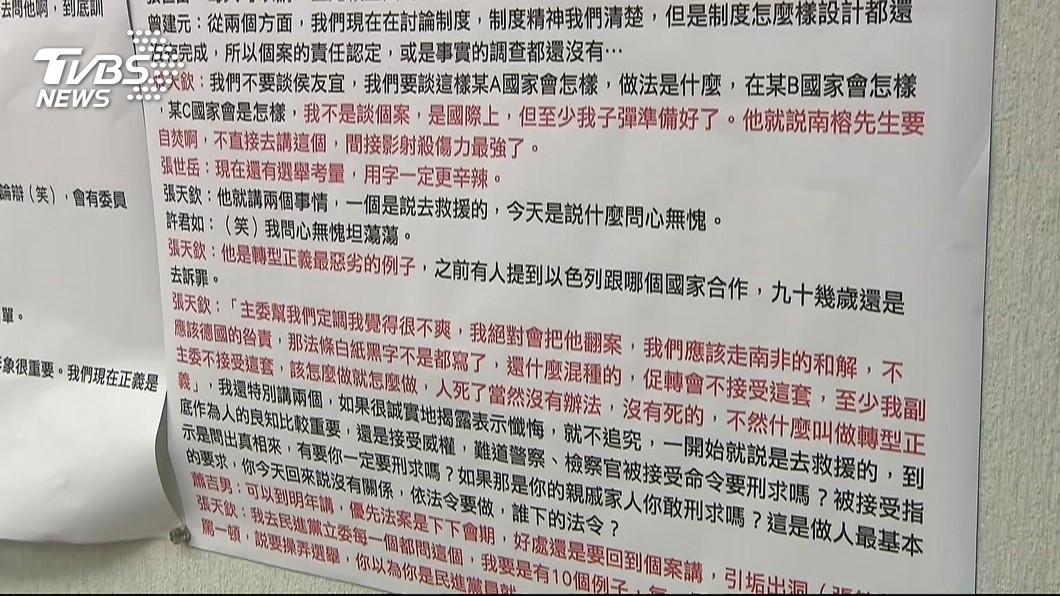 去問他啊，到底訓
論辯（笑），會有委員
單。
形象很重要。我們現在正義是
TVBS
NEWS
曾建元：從兩個方面，我們現在在討論制度，制度精神我們清楚，但是制度怎麼樣設計都還
完成，所以個案的責任認定，或是事實的調查都還沒有…
天欽：我們不要談侯友宜，我們要談這樣某A國家會怎樣，做法是什麼，在某B國家會怎樣
，某C國家會是怎樣，我不是談個案，是國際上，但至少我子彈準備好了。他就說南榕先生要
自焚啊，不直接去講這個，間接影射殺傷力最強了。
張世岳：現在還有選舉考量，用字一定更辛辣。
張天欽：他就講兩個事情，一個是說去救援的，今天是說什麼問心無愧。
許君如：（笑）我問心無愧坦蕩蕩。
張天欽：他是轉型正義最惡劣的例子，之前有人提到以色列跟哪個國家合作，九十幾歲還是
去訴罪。
張天欽：「主委幫我們定調我覺得很不爽，我絕對會把他翻案，我們應該走南非的和解，不
應該德國的咎責，那法條白紙黑字不是都寫了，還什麼混種的，促轉會不接受這套，至少我副
主委不接受這套，該怎麼做就怎麼做，人死了當然沒有辦法，沒有死的，不然什麼叫做轉型正
義」，我還特別講兩個，如果很誠實地揭露表示懺悔，就不追究，一開始就說是去救援的，到
底作為人的良知比較重要，還是接受威權，難道警察、檢察官被接受命令要刑求嗎？被接受指
示是問出真相來，有要你一定要刑求嗎？如果那是你的親戚家人你敢刑求嗎？這是做人最基本
的要求，你今天回來說沒有關係，依法令要做，誰下的法令？
蕭吉男：可以到明年講，優先法案是下下會期，好處還是要回到個案講，引垢出洞（張
張天欽：我去民進黨立委每一個都問這個，我要是有10個例子，每一
罵一頓，說要操弄選舉，你以為你是民進黨員就